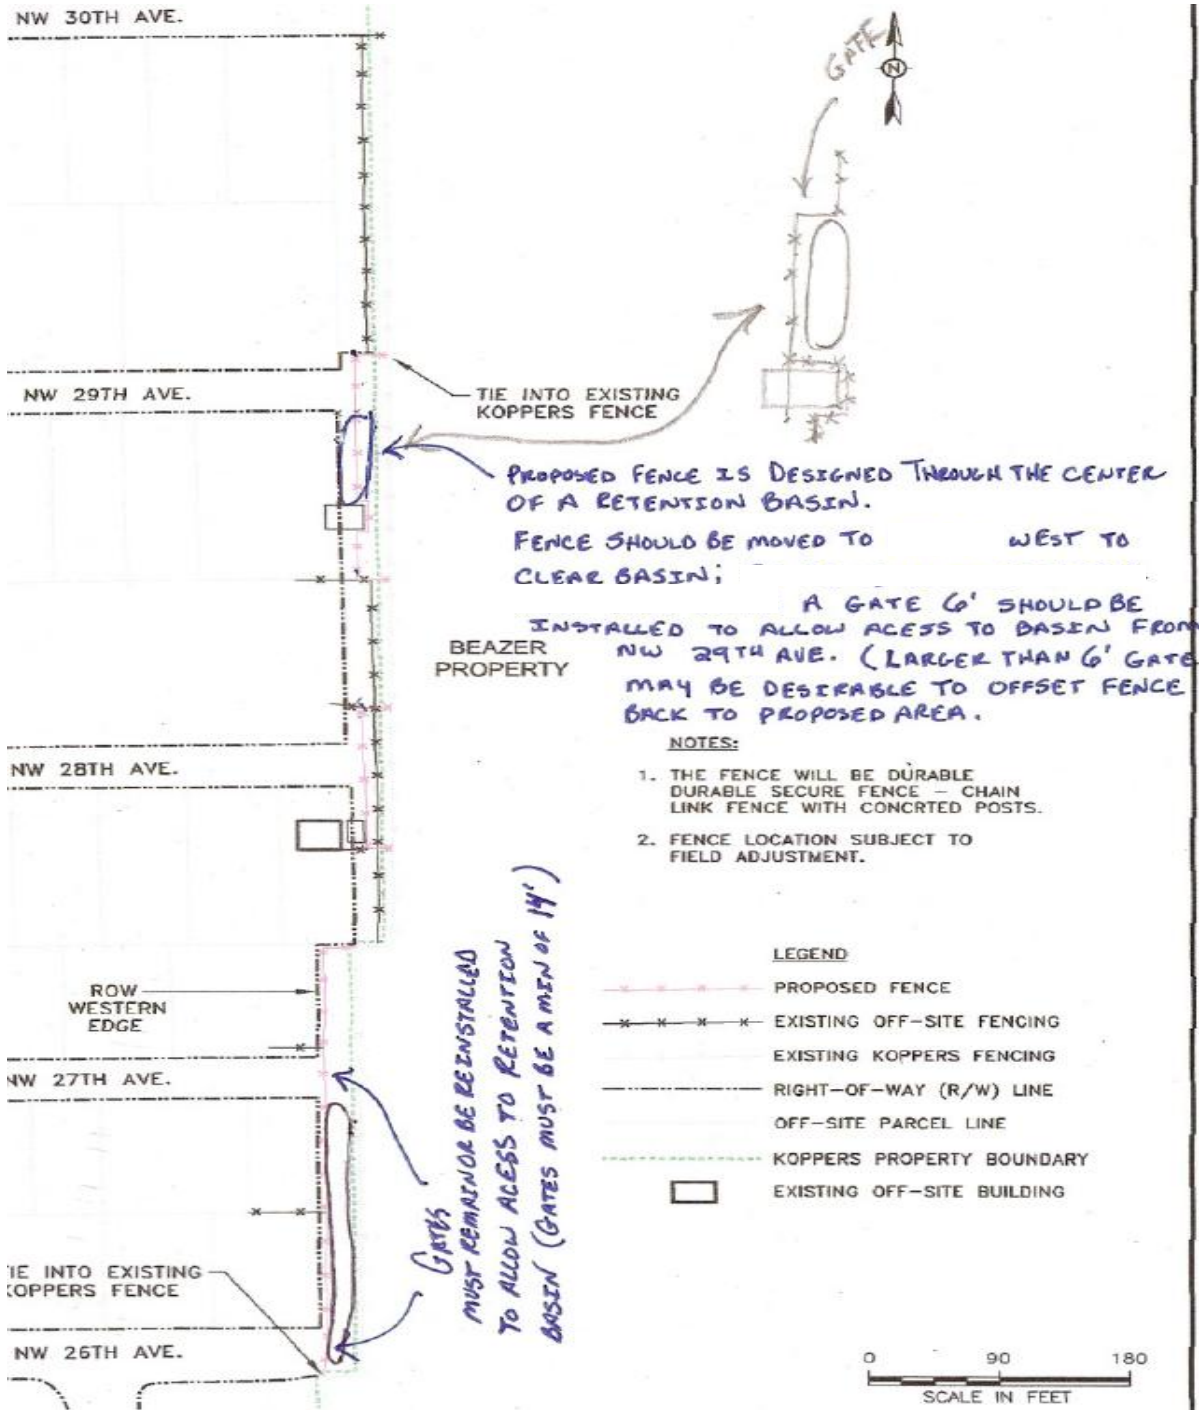 NW 30TH AVE.
GATE
N
NW 29TH AVE.
TIE INTO EXISTING
KOPPERS FENCE
PROPOSED FENCE IS DESIGNED THROUGH THE CENTER
OF A RETENTION BASIN.
FENCE SHOULD BE MOVED TO WEST TO
CLEAR BASIN;
A GATE 6' SHOULD BE
INSTALLED TO ALLOW ACESS TO BASIN FROM
NW 29TH AVE. (LARGER THAN 6' GATE
MAY BE DESIRABLE TO OFFSET FENCE
BACK TO PROPOSED AREA.
BEAZER
PROPERTY
NW 28TH AVE.
NOTES:
1. THE FENCE WILL BE DURABLE
DURABLE SECURE FENCE – CHAIN
LINK FENCE WITH CONCRTED POSTS.
2. FENCE LOCATION SUBJECT TO
FIELD ADJUSTMENT.
GATES
MUST REMAIN OR BE REINSTALLED
TO ALLOW ACESS TO RETENTION
BASIN (GATES MUST BE A MIN OF 14')
ROW
WESTERN
EDGE
LEGEND
PROPOSED FENCE
EXISTING OFF-SITE FENCING
EXISTING KOPPERS FENCING
RIGHT-OF-WAY (R/W) LINE
OFF-SITE PARCEL LINE
KOPPERS PROPERTY BOUNDARY
EXISTING OFF-SITE BUILDING
NW 27TH AVE.
IE INTO EXISTING
KOPPERS FENCE
NW 26TH AVE.
0 90 180
SCALE IN FEET